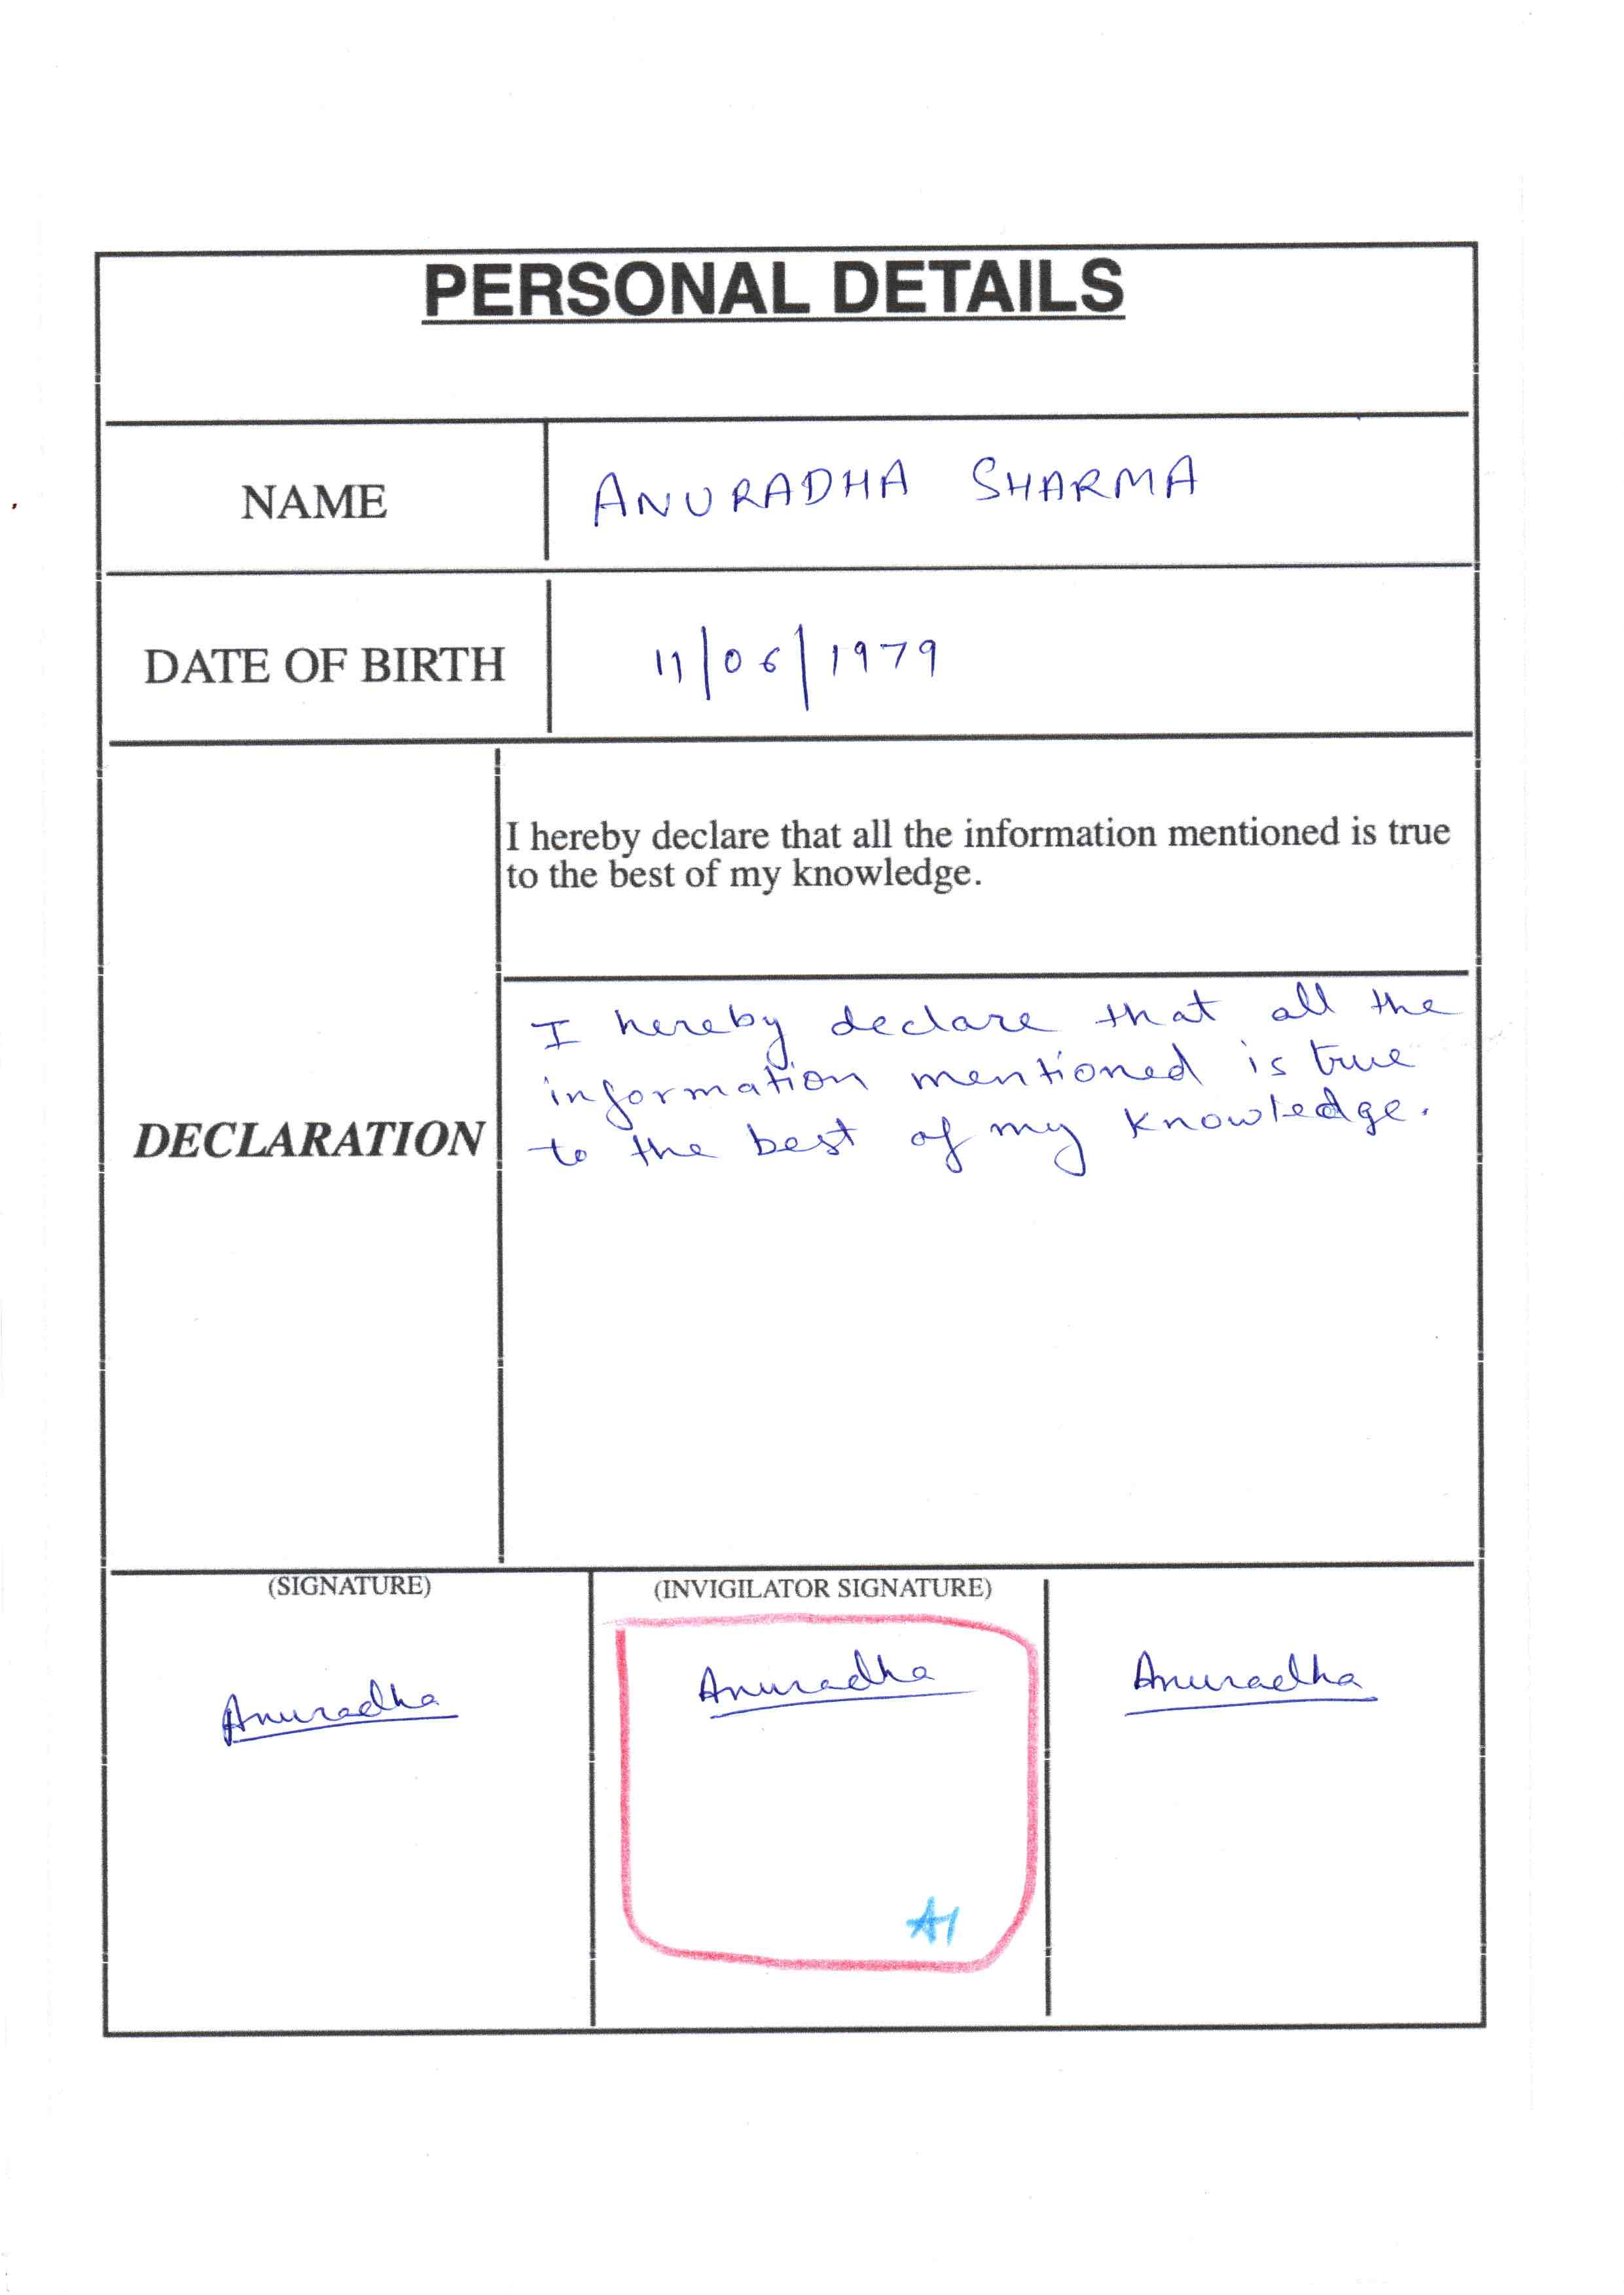 PERSONAL DETAILS
NAME
ANURADHA SHARMA
DATE OF BIRTH
11/06/1979
DECLARATION
I hereby declare that all the information mentioned is true
to the best of my knowledge.
I hereby declare that all the
information mentioned is true
to the best of my knowledge.
(SIGNATURE)
(INVIGILATOR SIGNATURE)
Anuradha
Anuradha
Anuradha
A1